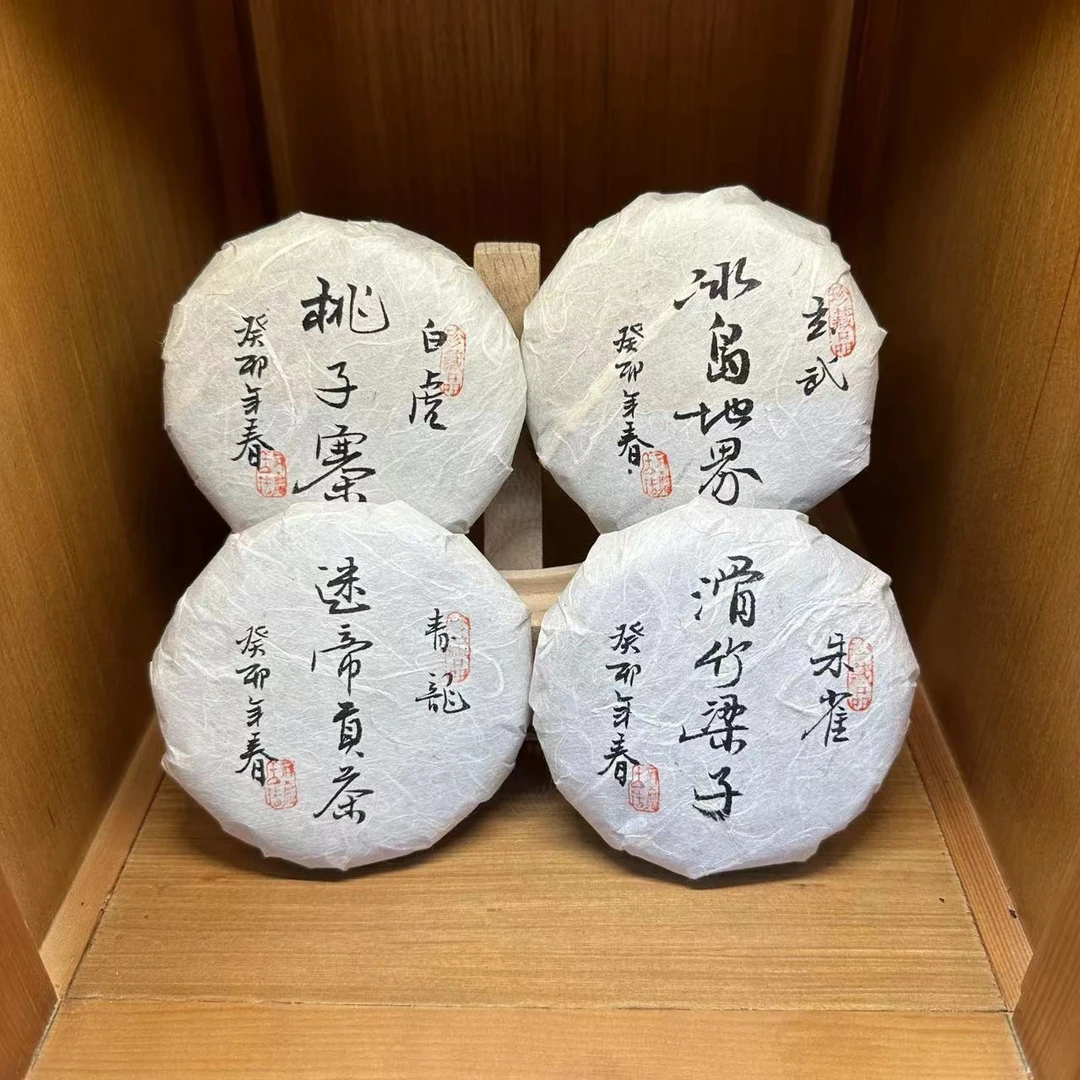 白虎
珍藏品
桃子寨
癸卯年春
玄武
珍藏品
冰島地界
癸卯年春
青龍
迷帝貢茶
癸卯年春
朱雀
珍藏品
滑竹梁子
癸卯年春